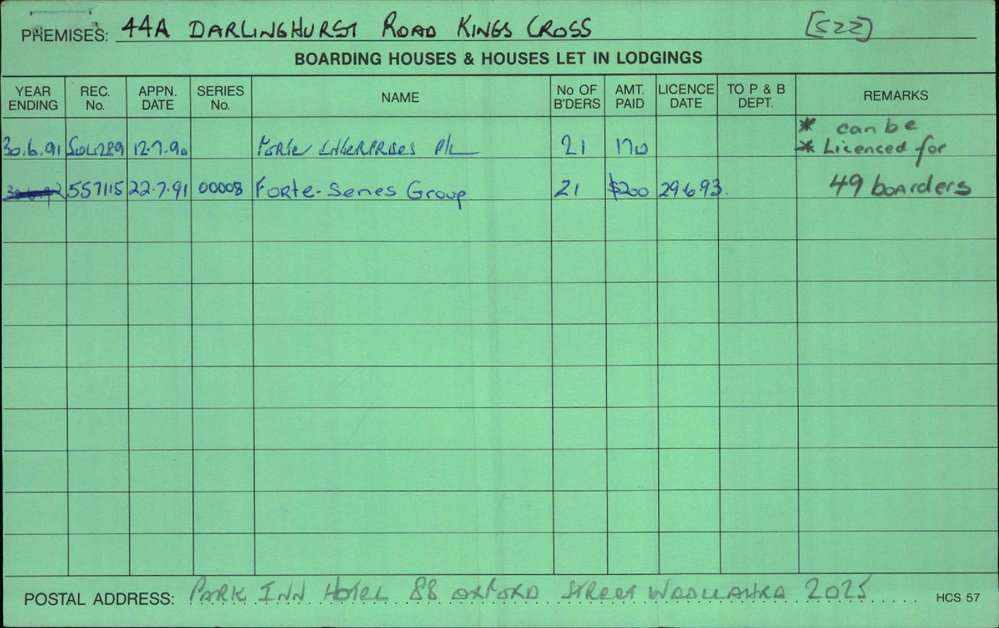 PREMISES: 44A DARLINGHURST ROAD KINGS CROSS [522]
BOARDING HOUSES & HOUSES LET IN LODGINGS
YEAR ENDING REC. No. APPN. DATE SERIES No. NAME No OF B'DERS AMT. PAID LICENCE DATE TO P & B DEPT. REMARKS
30.6.91 12.7.90 FORTE ENTERPRISES P/L 21 170 * can be * Licenced for
557115 22.7.91 00008 Forte-Senes Group 21 $200 29.6.93. 49 boarders
POSTAL ADDRESS: PARK INN HOTEL 88 OXFORD STREET WOOLLAHRA 2025 HCS 57